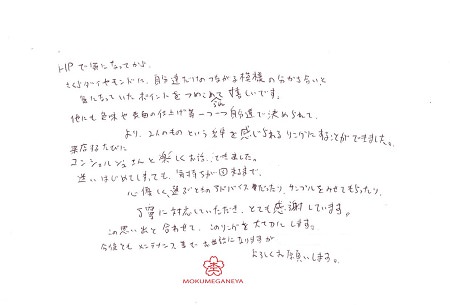 HPで気になってから、
さくらダイヤモンドに、自分達だけのつながる模様の分かち合いと
気になっていたポイントをつめこめて嬉しいです。
他にも色味や表面の仕上げ等一つ一つ自分達で決められて、
より、2人のものという を感じられるリングにすることができました。
来店するたびに
コンシェルジュさんと楽しくお話しできました。
迷いはじめてしまっても、気持ちが まるまで、
心優しく選ぶときのアドバイスを だったり、サンプルをみせてもらったり、
丁寧に対応していただき、とても感謝しています。
この思い出と合わせて、このリングを大切にします。
今後ともメンテナンスまでお世話になりますが
よろしくお願いします。
MOKUMEGANEYA